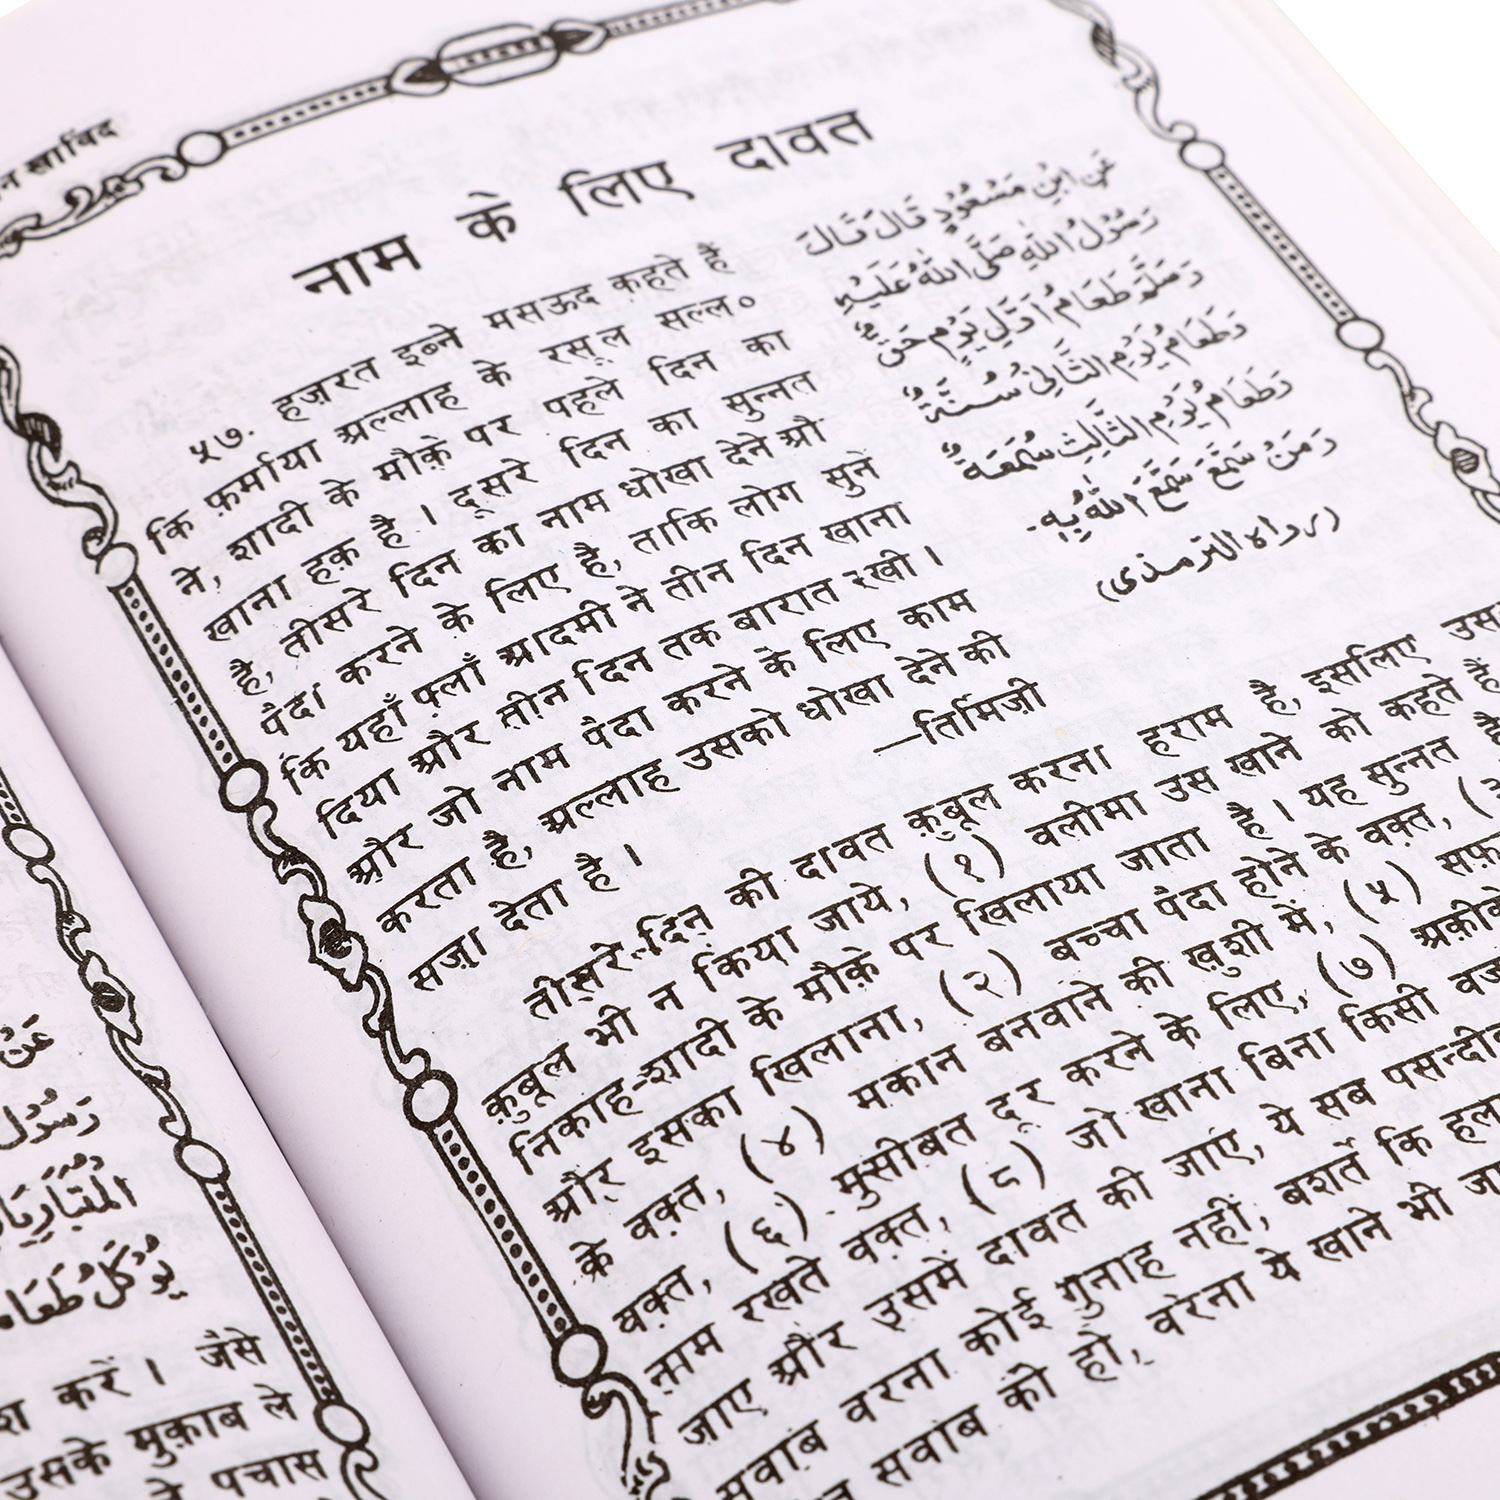 नाम के लिए दावत
५७. हज़रत इब्ने मसऊद कहते हैं
कि फ़र्माया अल्लाह के रसूल सल्ल०
ने, शादी के मौक़े पर पहले दिन का
खाना हक़ है । दूसरे दिन का सुन्नत
है, तीसरे दिन का नाम धोखा देने औ
पैदा करने के लिए है, ताकि लोग सुनें
कि यहाँ फ़्लाँ आदमी ने तीन दिन खाना
दिया और तीन दिन तक बारात रखी ।
और जो नाम पैदा करने के लिए काम
करता है, अल्लाह उसको धोखा देने की
सज़ा देता है ।
—तिर्मिज़ी
عَنِ ابْنِ مَسْعُوْدٍ قَالَ قَالَ
رَسُوْلُ اللّٰهِ صَلَّى اللّٰهُ عَلَيْهِ
وَسَلَّمَ طَعَامُ اَوَّلِ يَوْمٍ حَقٌّ
وَطَعَامُ يَوْمِ الثَّانِيْ سُنَّةٌ
وَطَعَامُ يَوْمِ الثَّالِثِ سُمْعَةٌ
وَمَنْ سَمَّعَ سَمَّعَ اللّٰهُ بِهٖ.
(رواه الترمذى)
तीसरे दिन की दावत क़ुबूल करना हराम है, इसलिए उस
क़ुबूल भी न किया जाये, (१) वलीमा उस खाने को कहते हैं
निकाह-शादी के मौक़े पर खिलाया जाता है । यह सुन्नत है
और इसका खिलाना, (२) बच्चा पैदा होने के वक़्त,
के वक़्त, (४) मकान बनवाने की ख़ुशी में, (५) सफ़
वक़्त, (६) मुसीबत दूर करने के लिए, (७) अक़ीक़े
नाम रखते वक़्त, (८) जो खाना बिना किसी वज
जाए और उसमें दावत की जाए, ये सब पसन्दीद
सवाब वरना कोई गुनाह नहीं, बशर्ते कि हला
सवाब की हो, वरना ये खाने भी जा
عَنْ
رَسُوْلُ
करें । जैसे
उसके मुक़ाब ले
पचास